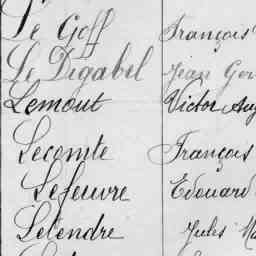 Le Goff François
Le Digabel Jean
Lemout Victor Aug
Lecomte François
Lefeuvre Edouard
Letendre Jules Ma